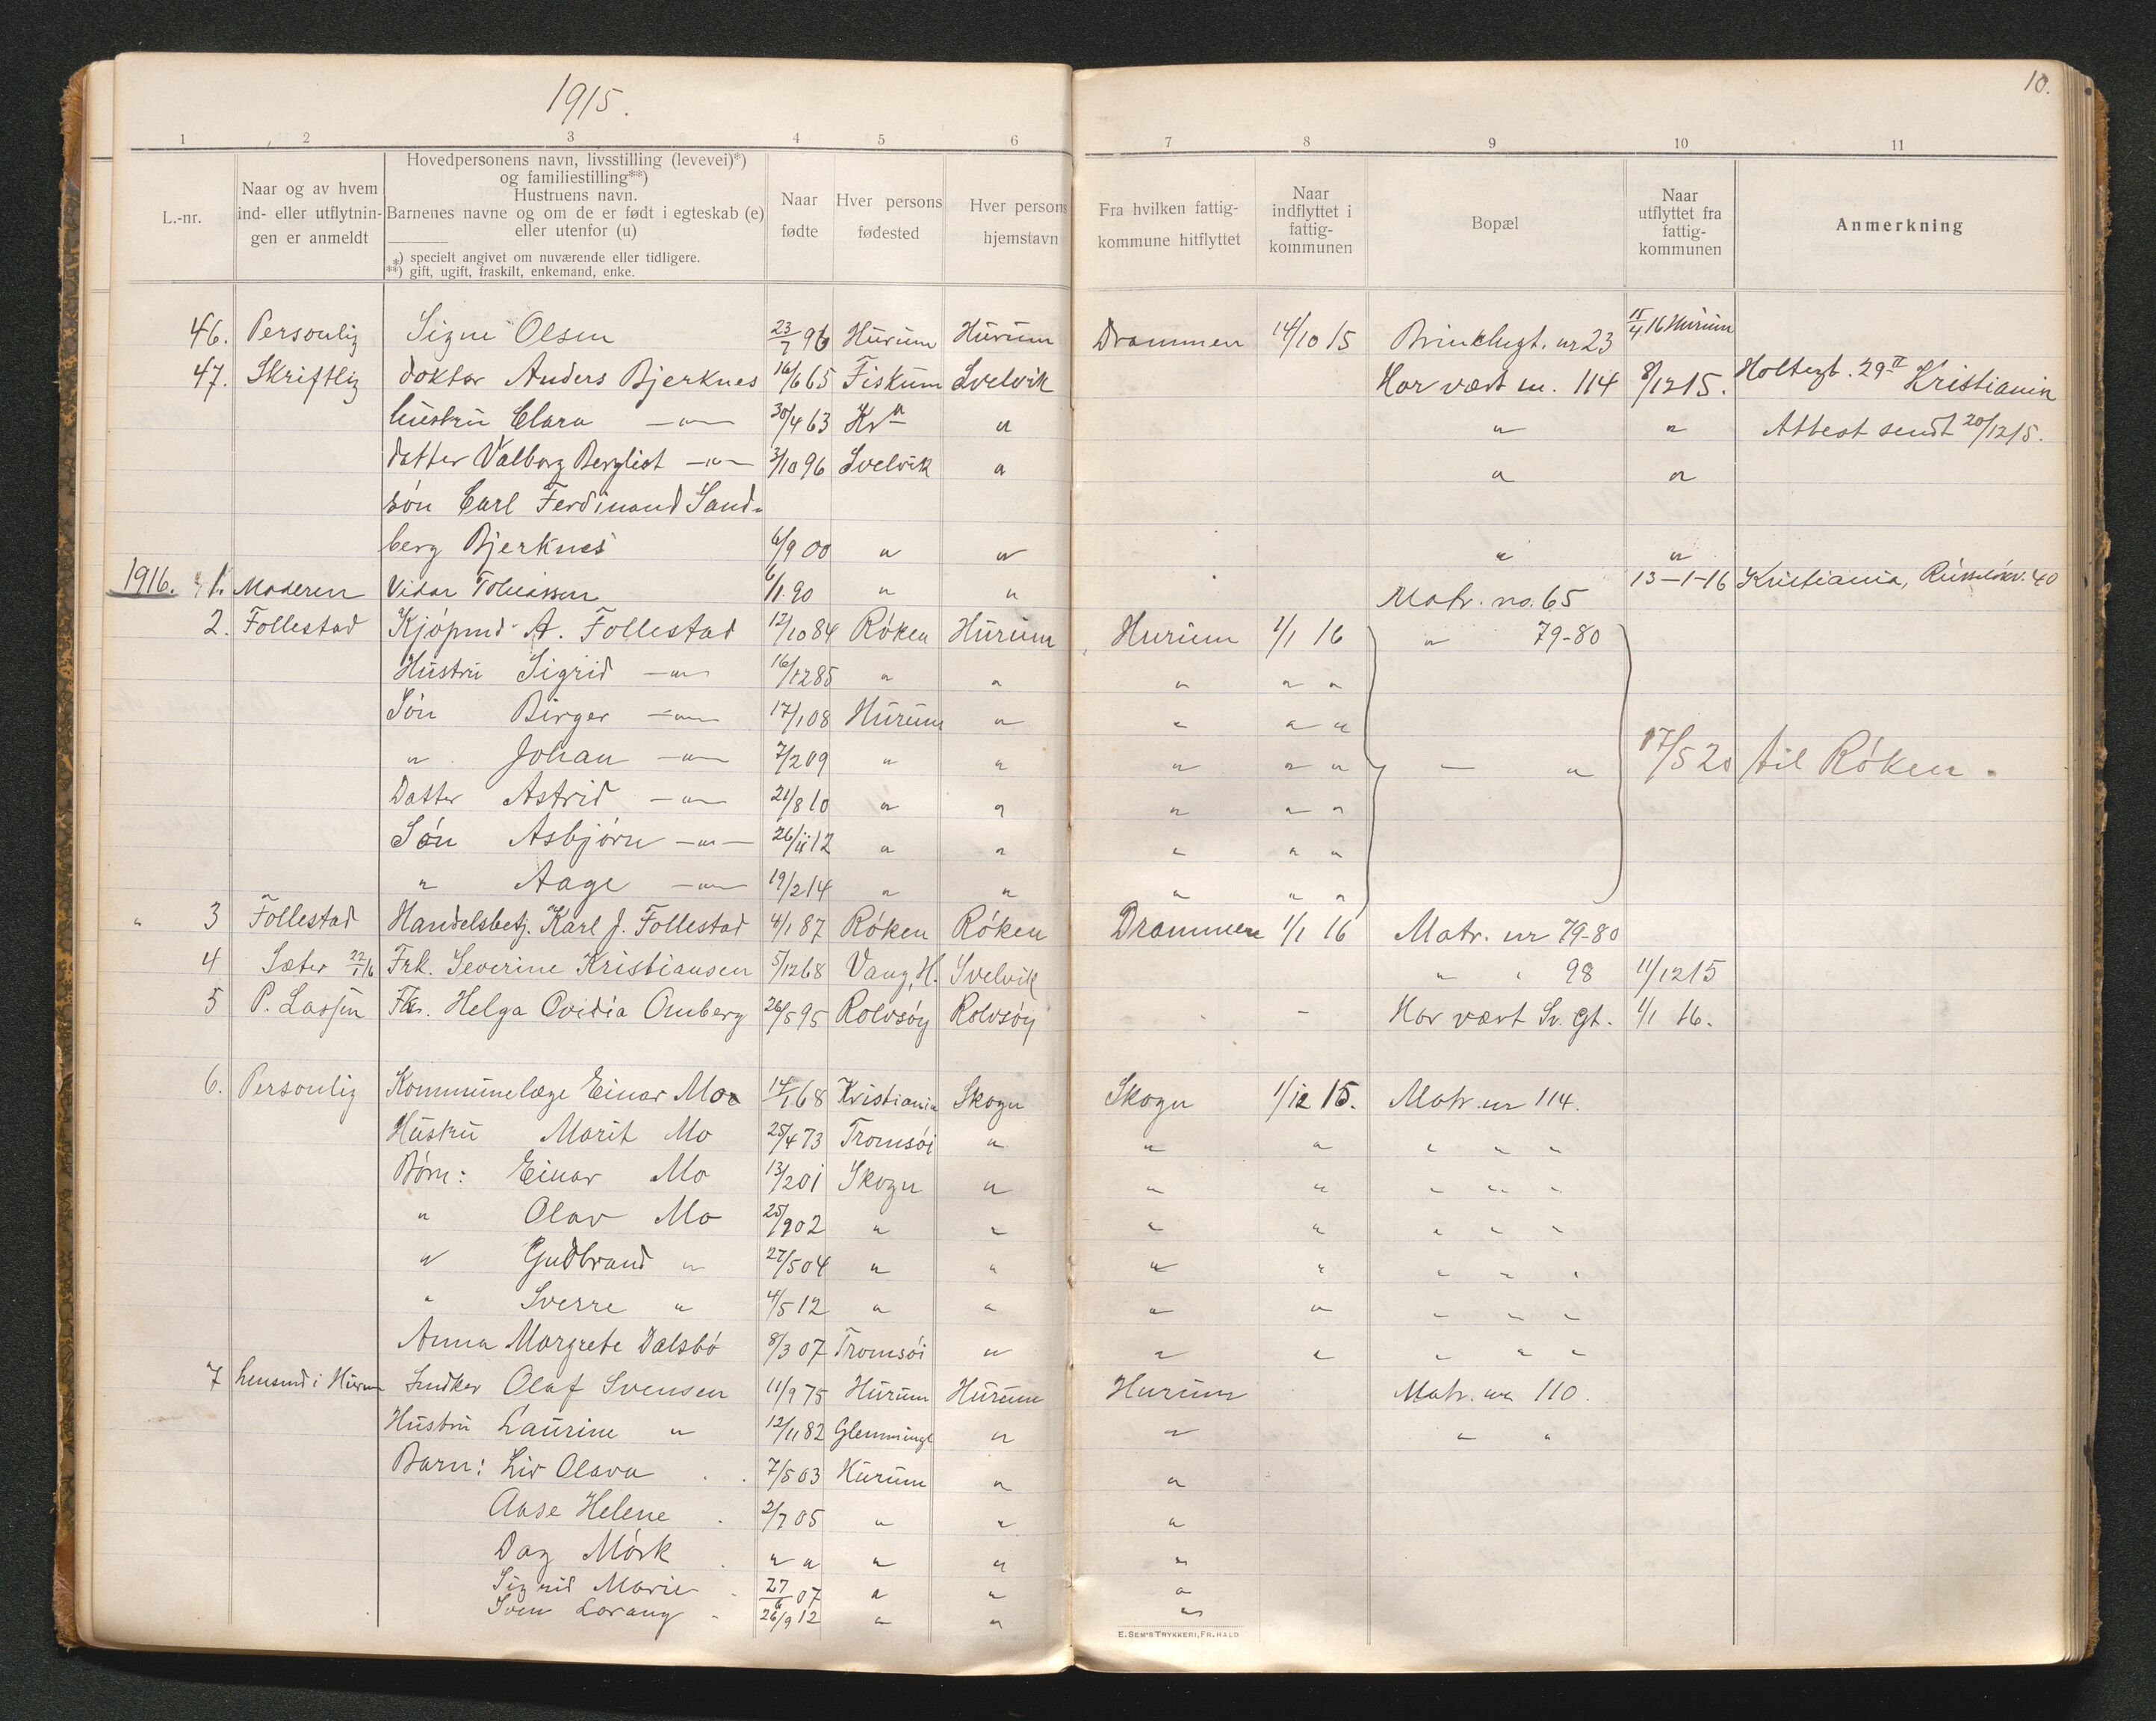 1915.
10.
1 2 3 4 5 6 7 8 9 10 11
L.-nr.
Naar og av hvem
ind- eller utflytnin-
gen er anmeldt
Hovedpersonens navn, livsstilling (levevei)*)
og familiestilling**)
Hustruens navn.
Barnenes navne og om de er født i egteskab (e)
eller utenfor (u)
*) specielt angivet om nuværende eller tidligere.
**) gift, ugift, fraskilt, enkemand, enke.
Naar
fødte
Hver persons
fødested
Hver persons
hjemstavn
Fra hvilken fattig-
kommune hitflyttet
Naar
indflyttet i
fattig-
kommunen
Bopæl
Naar
utflyttet fra
fattig-
kommunen
Anmerkning
46. Personlig Signe Olsen 23/7 96 Hurum Hurum Drammen 14/10 15 nr 23 15/4 16 Hurum
47. Skriftlig doktor Anders Bjerknes 16/6 65 Fiskum Svelvik Har vært m. 114 8/12 15. Holtegt. 29 II Kristiania
hustru Clara —"— 30/4 63 Kr a " " " Attest sendt 20/12 15.
datter Valborg Bergliot —"— 3/10 96 Svelvik " " "
søn Carl Ferdinand Sand-
berg Bjerknes 6/9 00 " " " "
1916. 1. Moderen Vidar Tobiassen 6/1 90 " " Matr. no. 65 13-1-16 Kristiania, 40
2. Follestad Kjøpmd A. Follestad 12/10 84 Røken Hurum Hurum 1/1 16 " 79-80
Hustru Sigrid —"— 16/12 85 " " " " "
Søn Birger —"— 17/1 08 Hurum " " " "
" Johan —"— 7/2 09 " " " " " — " 17/5 20 til Røken.
Datter Astrid —"— 21/8 10 " " " " "
Søn Asbjørn —"— 26/11 12 " " " " "
" Aage —"— 19/2 14 " " " " "
" 3 Follestad Handelsbetj. Karl J. Follestad 4/1 87 Røken Røken Drammen 1/1 16 Matr. nr 79-80
4 Sæter 22/1 16 Frk. Severine Kristiansen 5/12 68 Vang, H. Svelvik " " 98 11/12 15
5 P. Lassen Frk. Helga Ovidia Omberg 26/5 95 Rolvsøy Rolvsøy — Har vært Sv. gt. 1/1 16.
6. Personlig Kommunelæge Einar Mo 14/1 68 Kristiania Skogn Skogn 1/12 15. Matr. nr 114.
Hustru Marit Mo 25/4 73 Tromsøi " " " " " "
Børn: Einar Mo 13/2 01 Skogn " " " " " "
" Olav Mo 25/9 02 " " " " " " "
" Gudbrand " 27/5 04 " " " " " " "
" Sverre " 4/5 12 " " " " " " "
Anna Margrete Dalsbø 8/3 07 Tromsøi " " " " " "
7 Lensmd i Hurum Snedker Olaf Svensen 11/9 75 Hurum Hurum Hurum Matr. nr 110.
Hustru Laurine " 12/11 82 Glemminge " " " "
Barn: Liv Olava 7/5 03 Hurum " "
Aase Helene 2/7 05 " " "
Dag Mørk " " " " "
Sigrid Marie 27/6 07 " " "
Sven Lorang 26/9 12 " " "
E. SEM'S TRYKKERI, FR.HALD